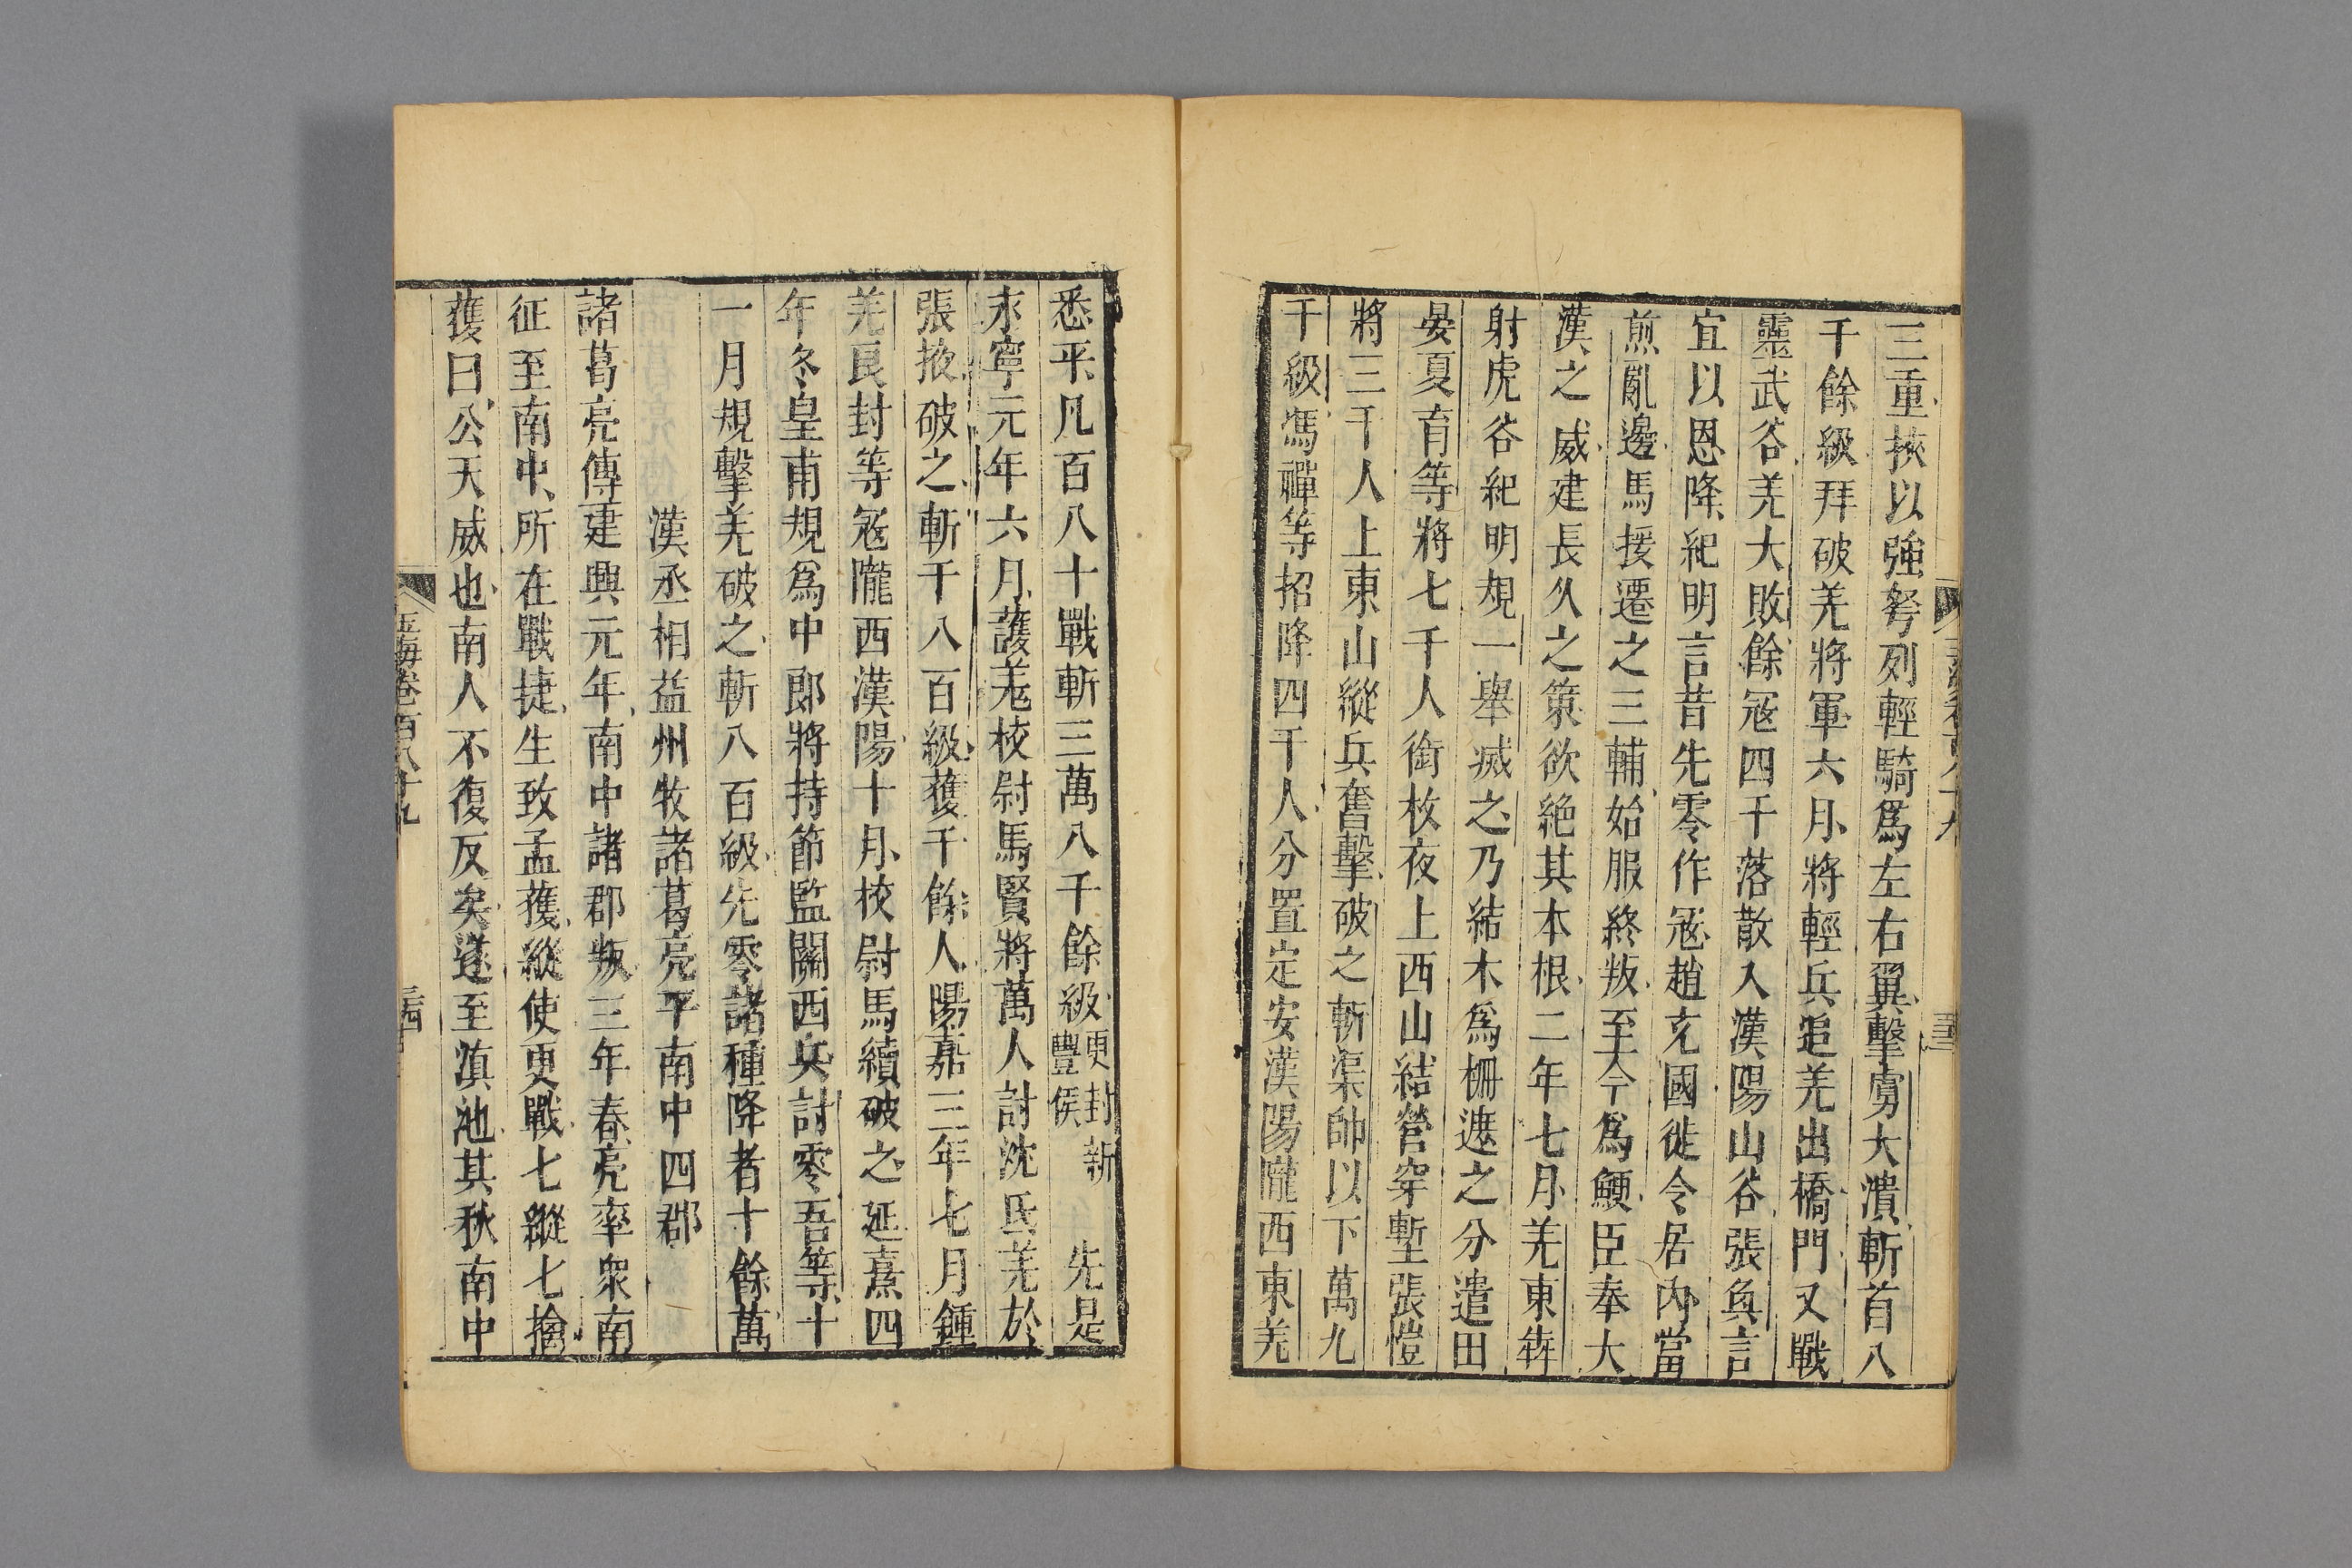 三重挾以強弩列輕騎爲左右翼擊虜大潰斬首八
千餘級拜破羌將軍六月將輕兵追羌出橋門又戰
靈武谷羌大敗餘寇四千落散入漢陽山谷張奐言
宜以恩降紀明言昔先零作寇趙充國徙令居內當
煎亂邊馬援遷之三輔始服終叛至今爲鯁臣奉大
漢之威建長久之策欲絶其本根二年七月羌東犇
射虎谷紀明規一舉滅之乃結木爲柵遮之分遣田
晏夏育等將七千人銜枚夜上西山結營穿塹張愷
將三千人上東山縱兵奮擊破之斬渠帥以下萬九
千級馮禪等招降四千人分置定安漢陽隴西東羌
悉平凡百八十戰斬三萬八千餘級更封新豐侯 先是
永寧元年六月護羌校尉馬賢將萬人討沈氐羌於
張掖破之斬千八百級獲千餘人陽嘉三年七月鍾
羌良封等寇隴西漢陽十月校尉馬續破之延熹四
年冬皇甫規爲中郎將持節監關西兵討零吾等十
一月規擊羌破之斬八百級先零諸種降者十餘萬
漢丞相益州牧諸葛亮平南中四郡
諸葛亮傳建興元年南中諸郡叛三年春亮率衆南
征至南中所在戰捷生致孟獲縱使更戰七縱七擒
獲曰公天威也南人不復反矣遂至滇池其秋南中
玉海卷百八十九